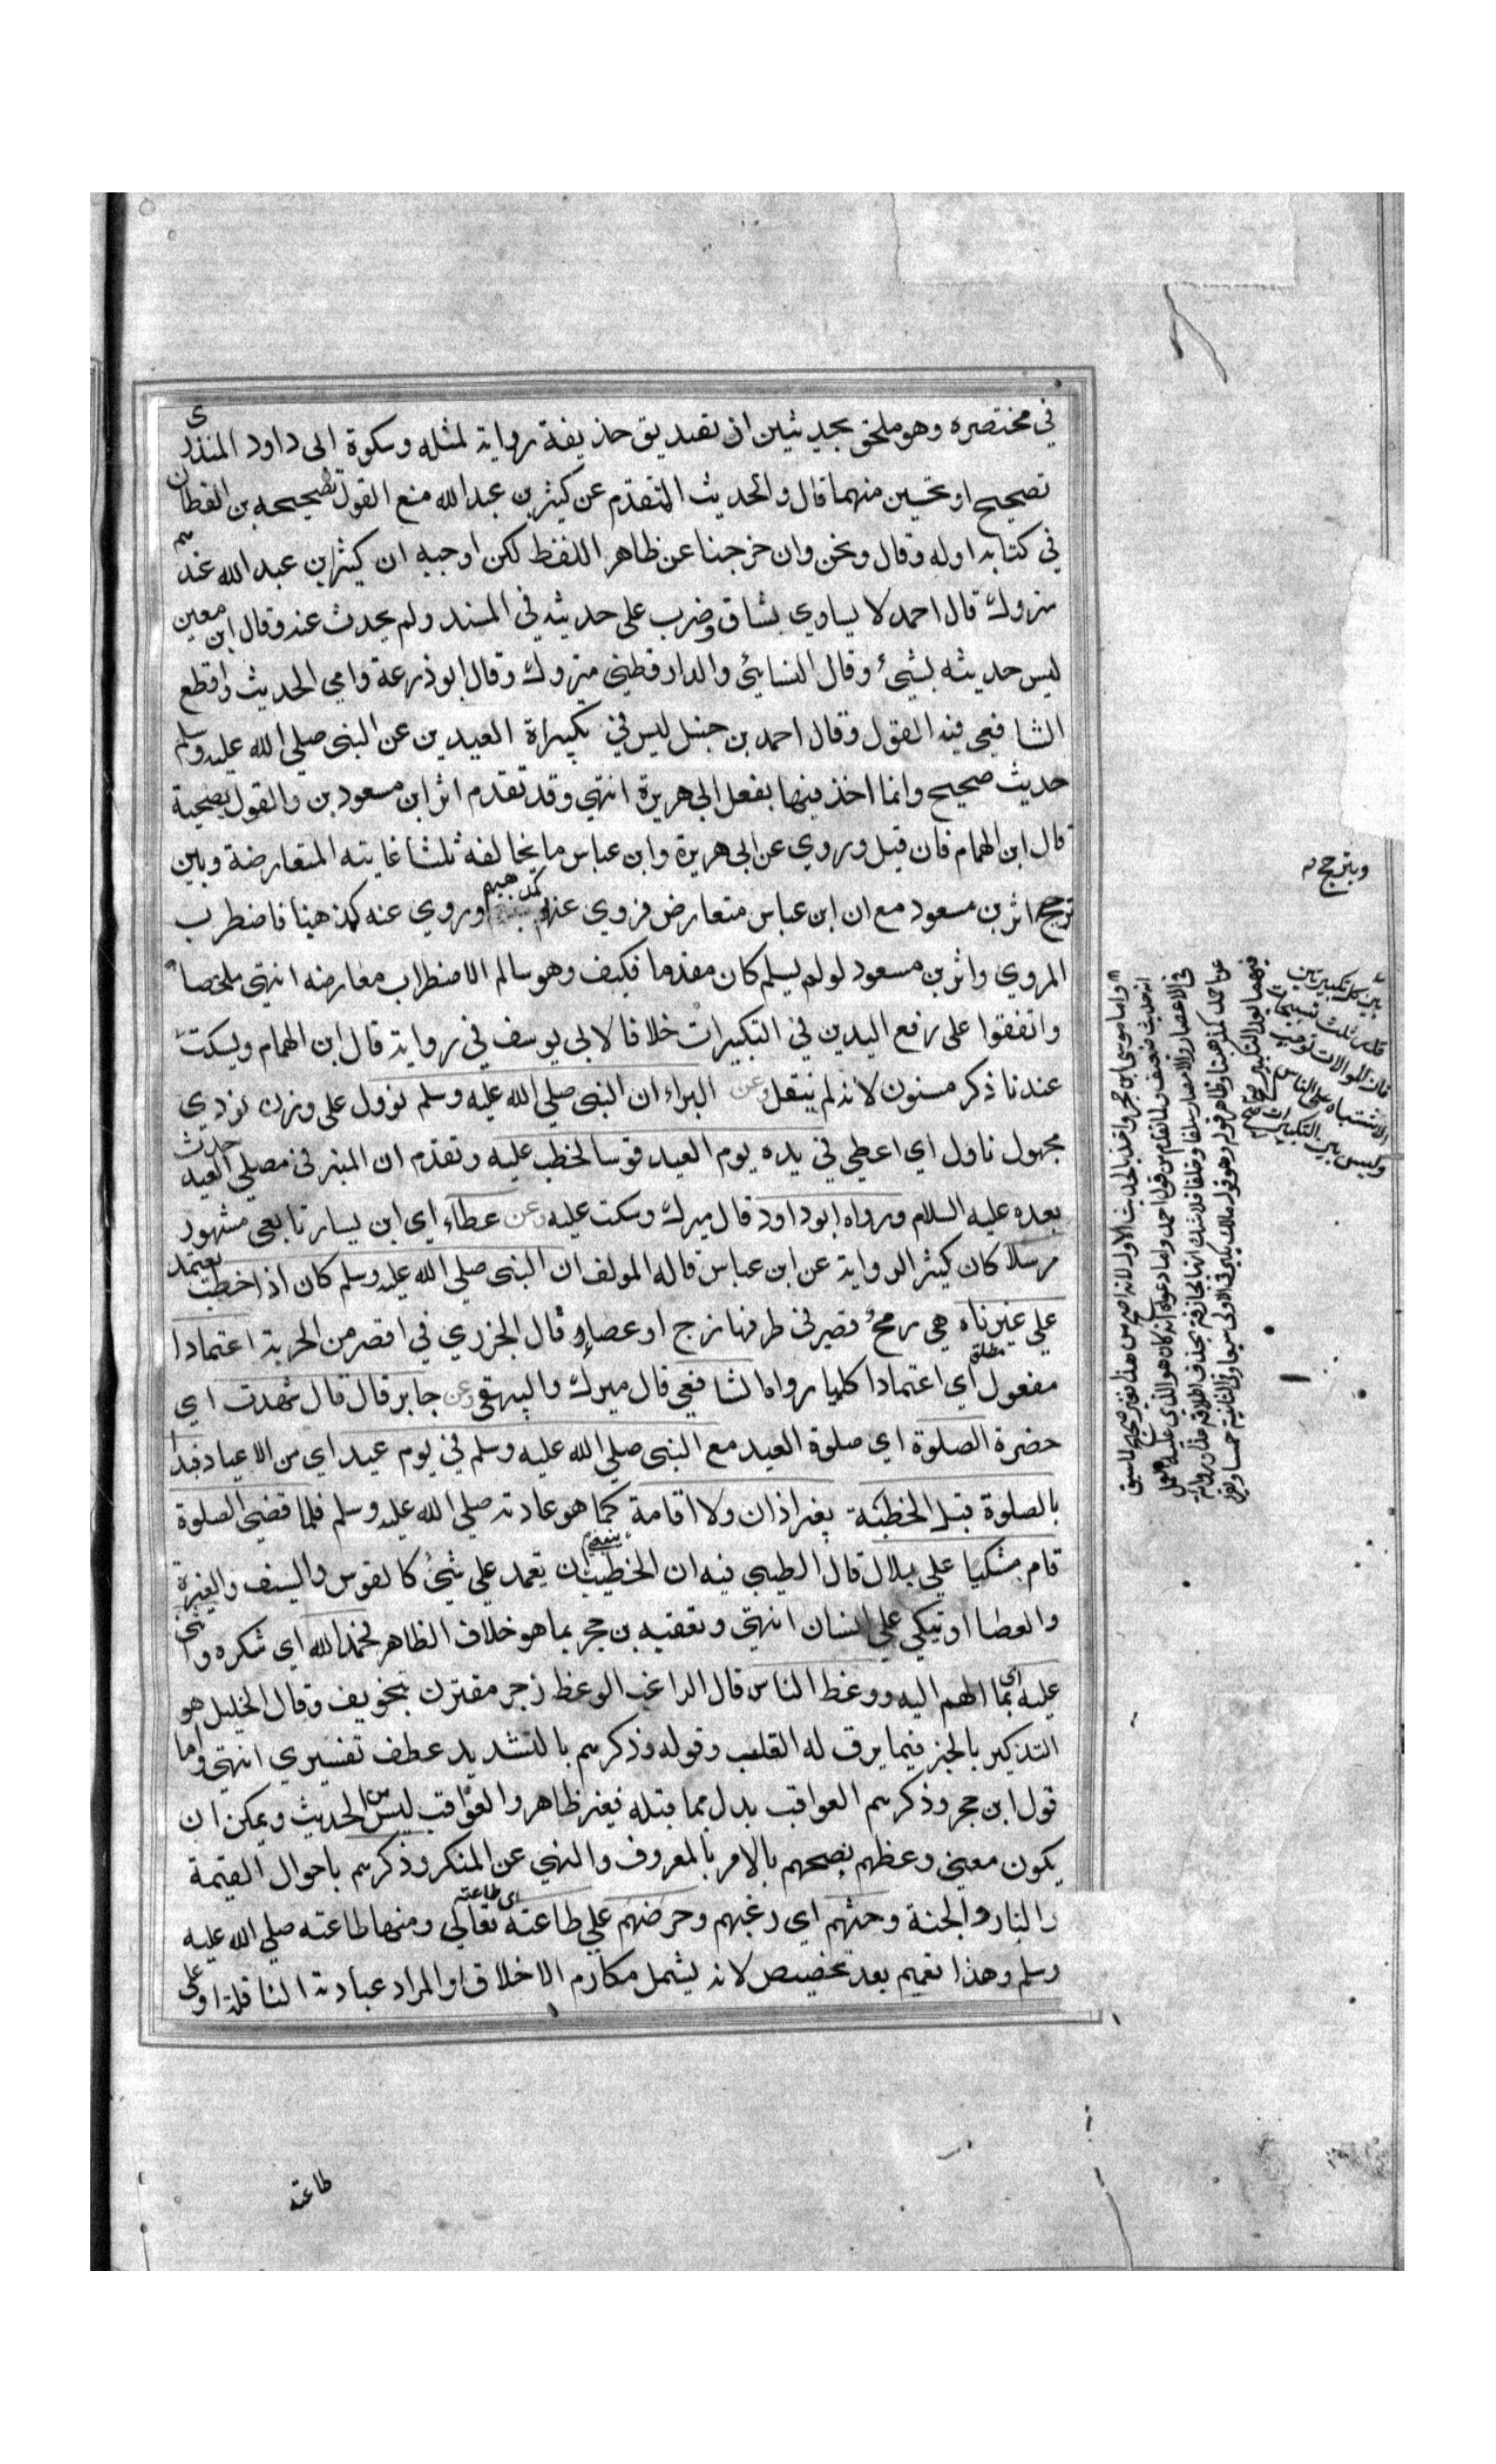 في مختصره وهو ملحق بحديثين اذ تصديق حذيفة رواية لمثله وسكوة ابى داود المنذرى
تصحيح او تحسين منهما قال والحديث المتقدم عن كثير بن عبد الله منع القول بتصحيحه بن القطان
في كتابه اوله وقال ونحن وان خرجنا عن ظاهر اللفظ لكن اوجبه ان كثير بن عبد الله عندهم
متروك قال احمد لا يساوي بشاق وضرب على حديثه في المسند ولم يحدث عنه وقال ابن معين
ليس حديثه بشيئ وقال النسايئ والدارقطني متروك وقال ابو ذرعة وامي الحديث واقطع
الشافعي فيه القول وقال احمد بن حنبل ليس في تكبيراة العيدين عن النبى صلي الله عليه وسلم
حديث صحيح وانما اخذ فيها بفعل ابى هريرة انتهي وقد تقدم اثر ابن مسعود بن والقول بصحية
قال ابن الهمام فان قيل وروي عن ابى هريرة وابن عباس ما يخالفه قلنا غايته المتعارضة وبين
ترجح اثر بن مسعود مع ان ابن عباس متعارض فروي عنه كمذهبهم وروي عنه كمذهبنا فاضطرب
المروي واثر بن مسعود لو لم يسلم كان مقدما فكيف وهو سالم الاضطراب معارضه انتهي ملخصا
واتفقوا على رفع اليدين في التكبيرات خلافا لابى يوسف في رواية قال ابن الهمام ويسكت
عندنا ذكر مسنون لانه لم ينقل وعن البراء ان النبى صلي الله عليه وسلم نوول على وزن نودي
مجهول ناول اي اعطي في يده يوم العيد قوسا لخطب عليه وتقدم ان المنبر في مصلي العيد حدث
بعده عليه السلام ورواه ابو داود قال ميرك وسكت عليه وعن عطاء اي ابن يسار تابعي مشهور
مرسلا كان كثير الرواية عن ابن عباس قاله المولف ان النبى صلي الله عليه وسلم كان اذا خطب يعتمد
علي عنزناه هي رمح قصير في طرفها زج او عصا قال الجزري في اقصر من الحربة اعتمادا
مفعول مطلق اي اعتمادا كليا رواه الشافعي قال ميرك والبيهقي وعن جابر قال قال شهدت اي
حضرة الصلوة اي صلوة العيد مع النبى صلي الله عليه وسلم في يوم عيد اي من الاعياد فبدا
بالصلوة قبل الخطبة بغير اذان ولا اقامة كما هو عادته صلي الله عليه وسلم فلما قضي الصلوة
قام متكيا علي بلال قال الطيبي فيه ان الخطيب ينبغي ان يعتمد علي شيئ كالقوس والسيف والعنزة
والعصا او يتكي علي انسان انتهي وتعقبه بن حجر بما هو خلاف الظاهر فحمد الله اي شكره واثنى
عليه اي بما الهم اليه ووعظ الناس قال الراغب الوعظ زجر مقترن بتخويف وقال الخليل هو
التذكير بالخير فيما يرق له القلب وقوله وذكرهم بالتشديد عطف تفسيري انتهي واما
قول ابن حجر وذكرهم العواقب بدل مما قبله فغير ظاهر والعواقب ليس من الحديث ويمكن ان
يكون معنى وعظهم بصحهم بالامر بالمعروف والنهي عن المنكر وذكرهم باحوال القيمة
والنار والجنة وحثهم اي رغبهم وحرضهم علي طاعته اي طاعته تعالي ومنها طاعته صلي الله عليه
وسلم وهذا تعميم بعد تخصيص لانه يشمل مكارم الاخلاق او المراد عبادة النافلة او علي
طاعته
ويترجح
بين كل تكبيرتين
قدر ثلث تسبيحات
فان الموالات توجب
الاشتباه على الناس
وليس بين التكبيرات